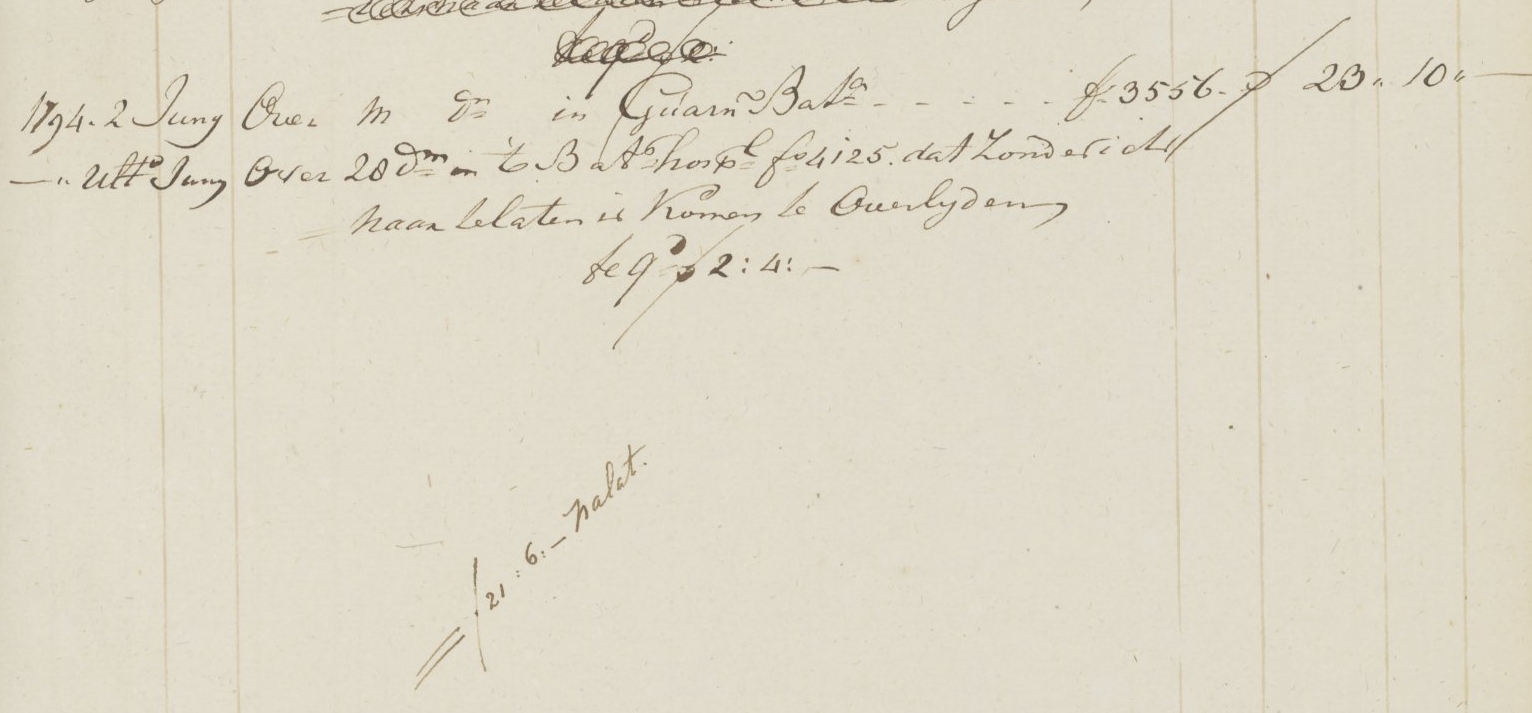 1794. 2 Juny Over m dn in Guarn Bata - - - - - f 3556. ƒ 23„ 10„ —
—„ Ulto Juny Over 28 dm in 't Bats hospl fo 4125. dat Zonder iets
naar te laten is Komen te Overlyden
te qd ƒ 2: 4: —
// ƒ 21: 6: — nalat.